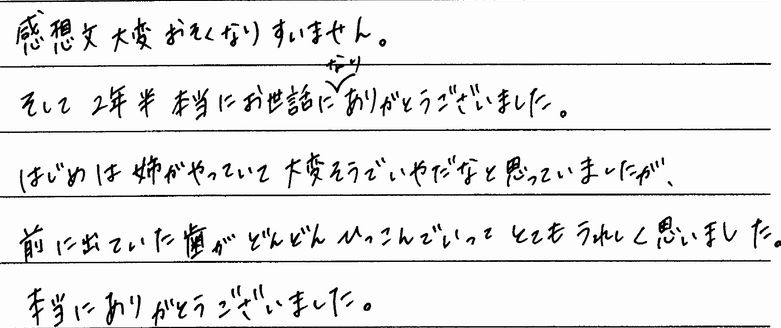 感想文大変おそくなりすいません。
そして2年半本当にお世話になりありがとうございました。
はじめは姉がやっていて大変そうでいやだなと思っていましたが、
前に出ていた歯がどんどんひっこんでいってとてもうれしく思いました。
本当にありがとうございました。